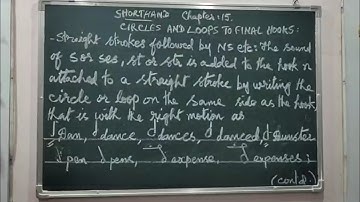 SHORTHAND Chapter:15.
CIRCLES AND LOOPS TO FINAL HOOKS:
-Straight strokes followed by NS etc: The sound
of S or ses, st or str is added to the hook n
attached to a straight stroke by writing the
circle or loop on the same side as the hook
that is with the right motion as
Dan, dance, dances, danced, Dunster
pen pens, expense, expenses;
(contd.)